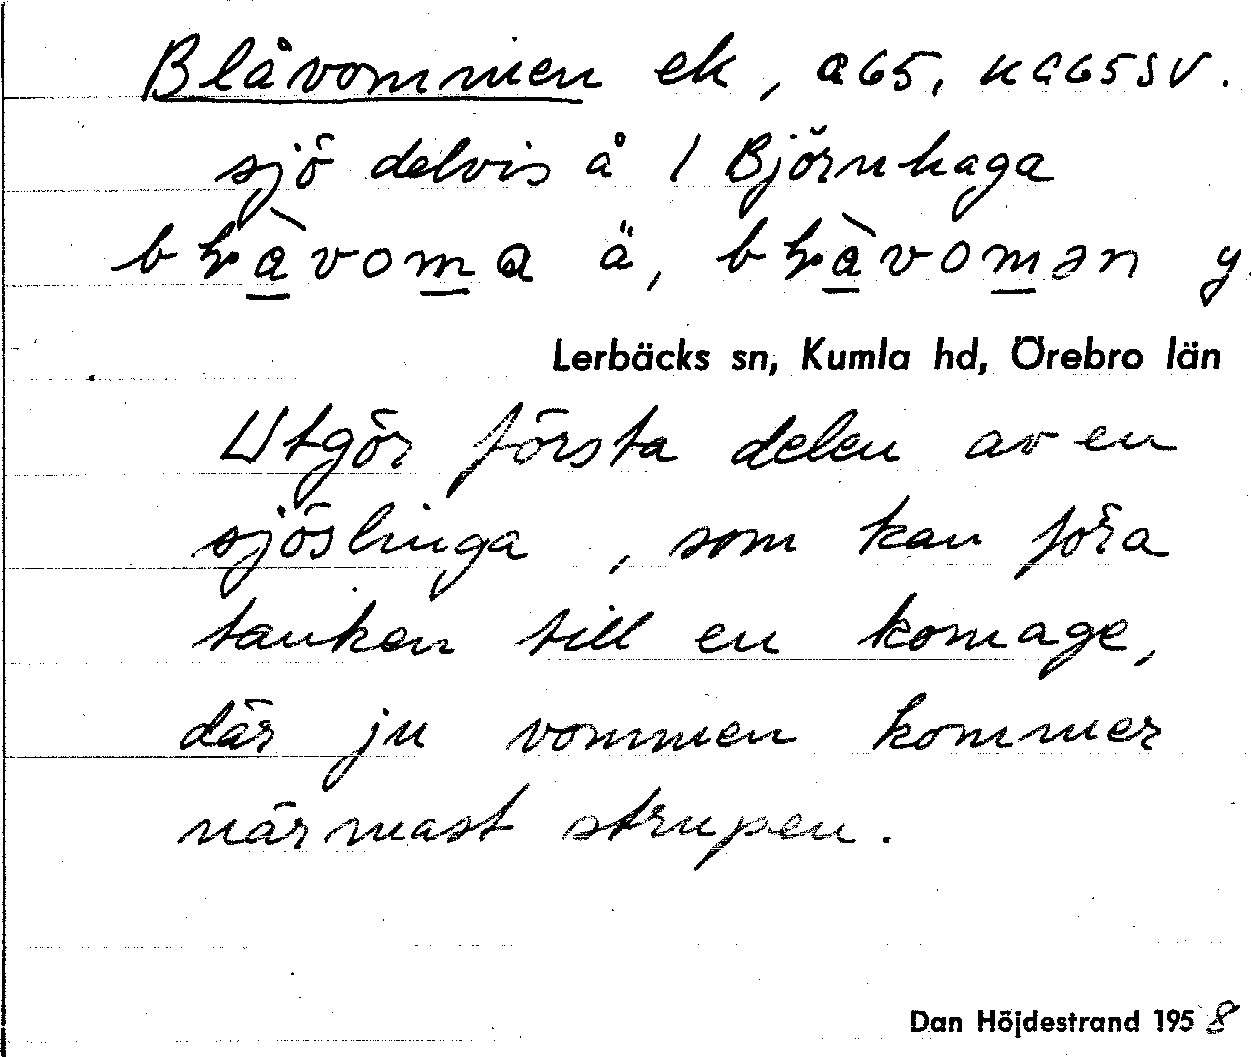 Blåvommen ek, a65, KG65SV.
sjö delvis å 1 Björnhaga
ä, y
Lerbäcks sn, Kumla hd, Örebro län
Utgör första delen av en
sjöslinga, som kan föra
tanken till en komage,
där ju vommen kommer
närmast strupen.
Dan Höjdestrand 1958